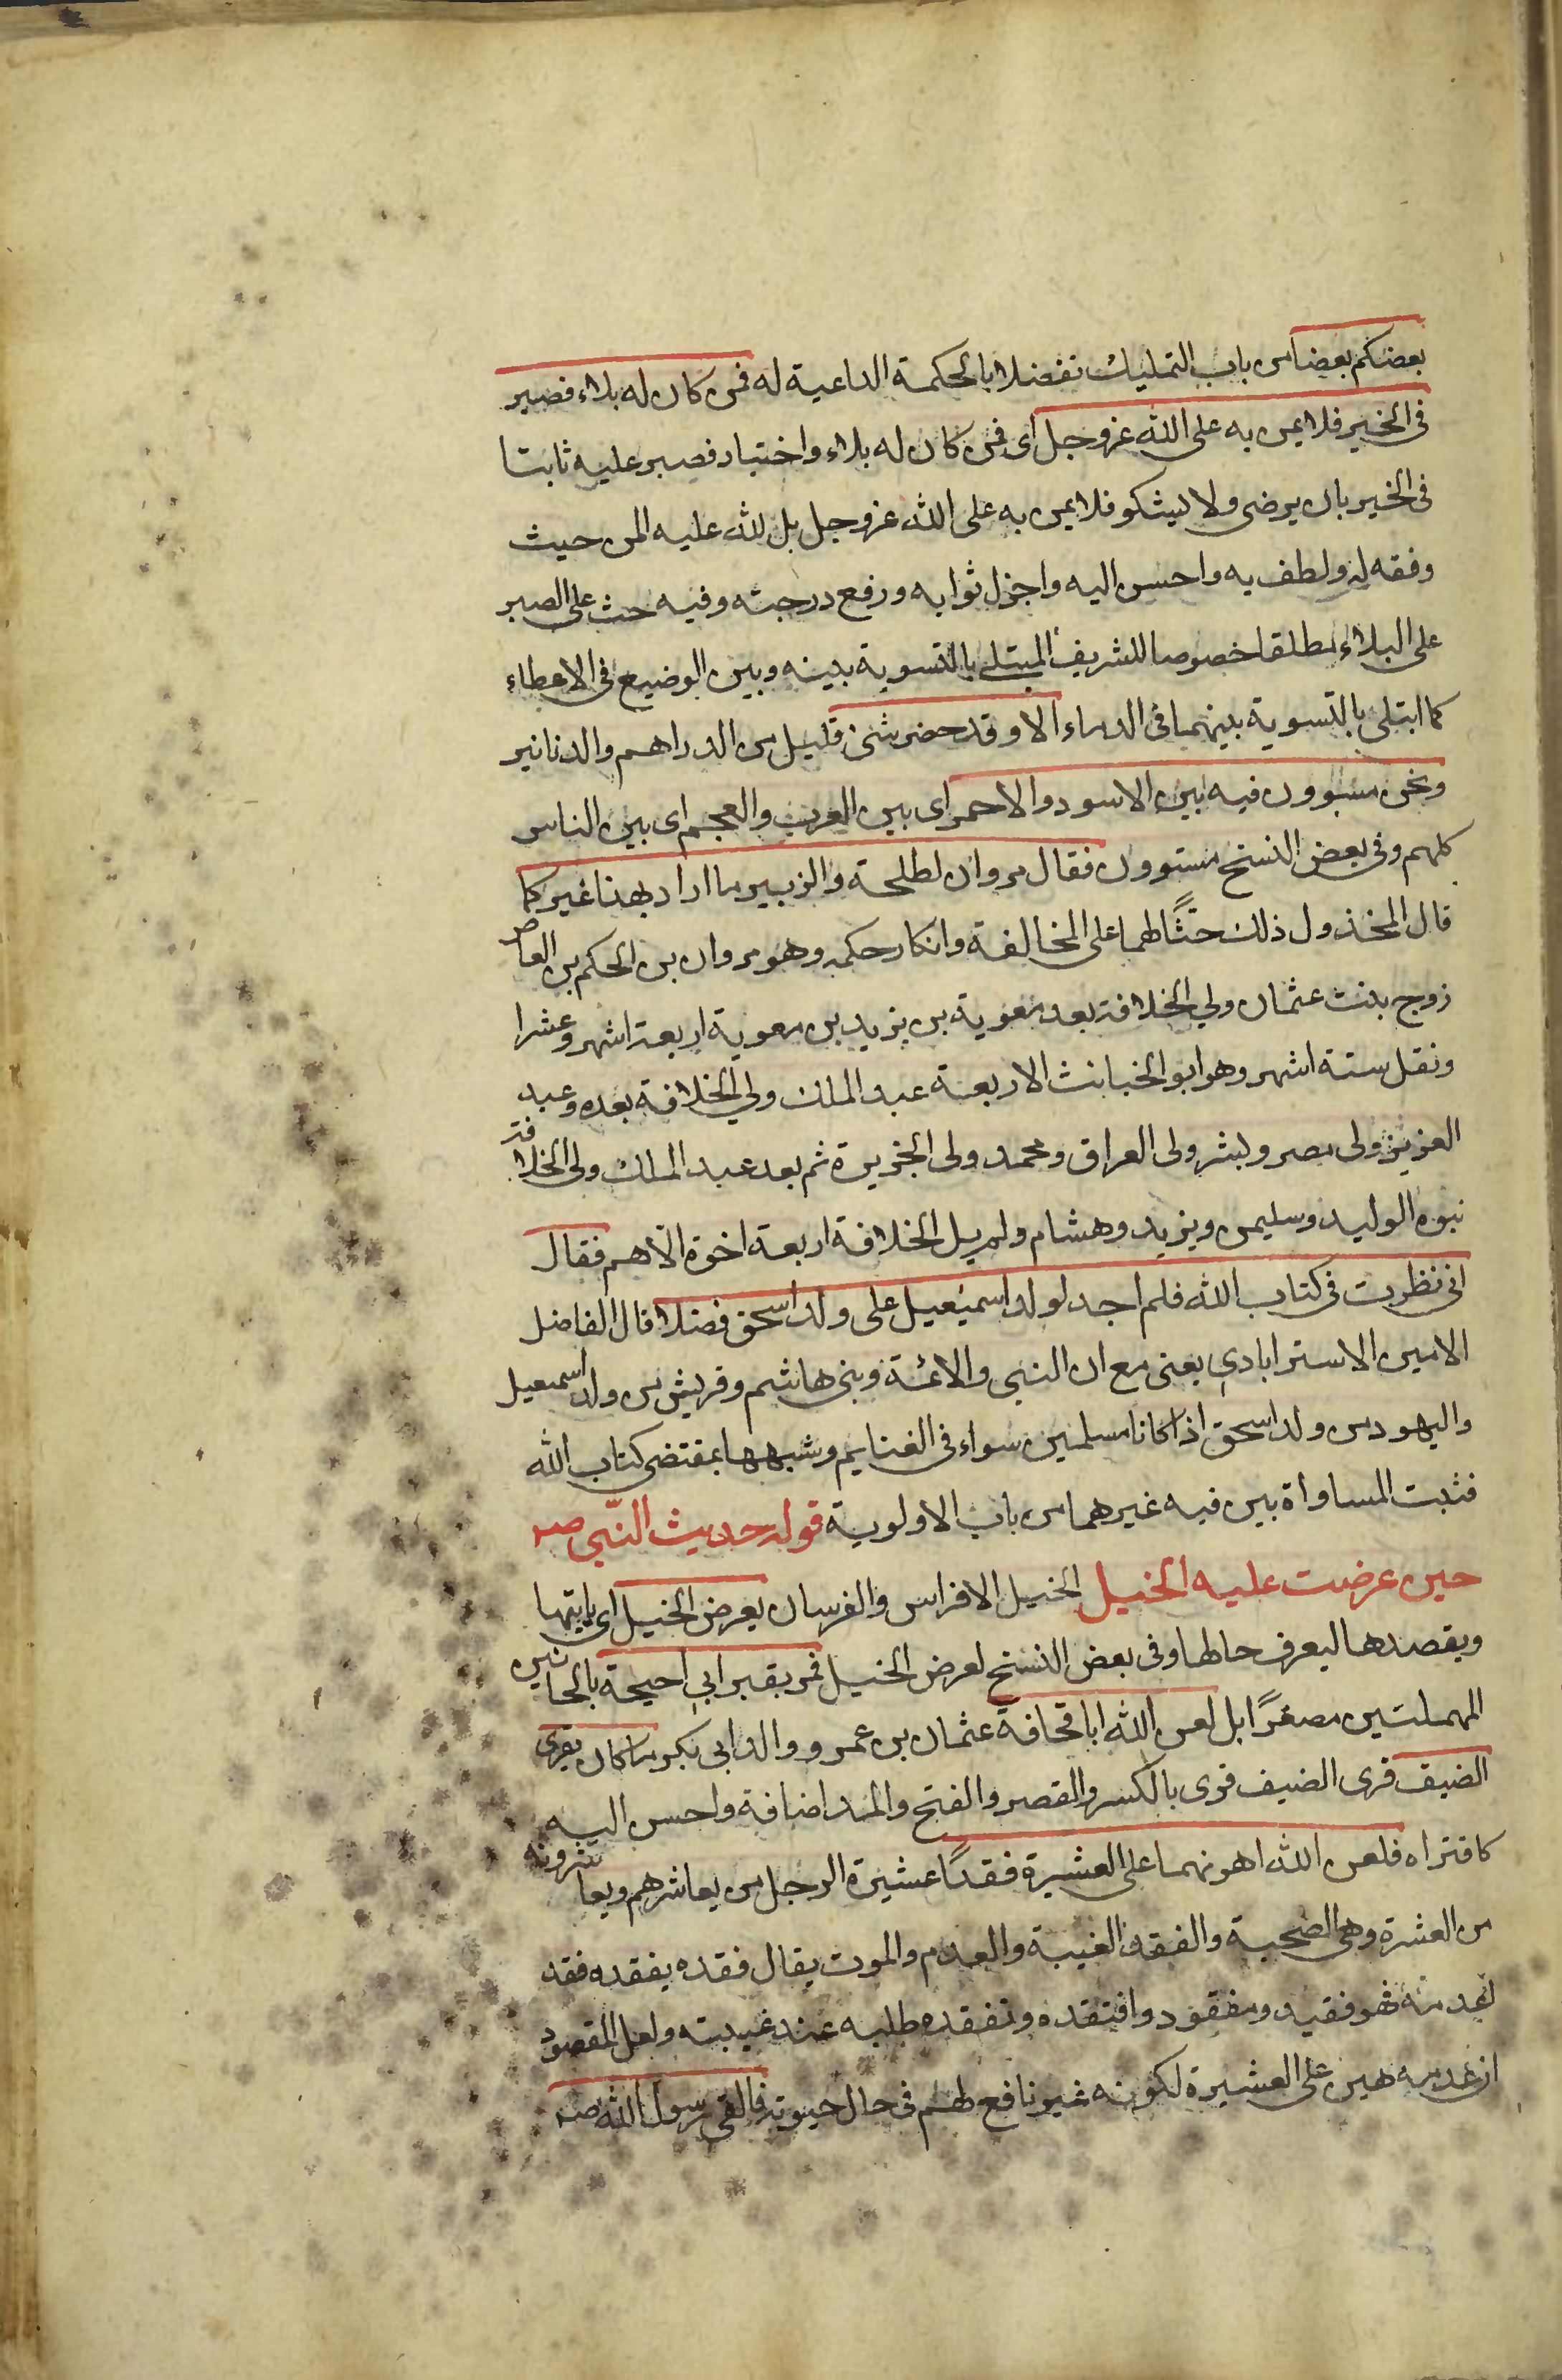 بعضكم بعضا من باب التمليك تفضلا بالحكمة الداعية له فمن كان له بلاء فصبر
فى الخير فلا يمن به على الله عزوجل اى فمن كان له بلاء واختبار فصبر عليه ثابتا
فى الخير بان يرضى ولا يشكو فلا يمن به على الله عزوجل بل لله عليه المن حيث
وفقه له ولطف به واحسن اليه واجزل ثوابه ورفع درجته وفيه حث على الصبر
على البلاء مطلقا خصوصا للشريف المبتلى بالتسوية بينه وبين الوضيع فى الاعطاء
كما ابتلى بالتسوية بينهما فى الدماء الا وقد حضر شئ قليل من الدراهم والدنانير
ونحن مسوون فيه بين الاسود والاحمر اى بين العرب والعجم اى بين الناس
كلهم وفى بعض النسخ مستوون فقال مروان لطلحة والزبير ما اراد بهذا غيركما
قال المخذول ذلك حثًّا لهما على المخالفة وانكار حكمه وهو مروان بن الحكم بن العاص
زوج بنت عثمان ولي الخلافة بعد معوية بن يزيد بن معوية اربعة اشهر وعشرا
ونقل ستة اشهر وهو ابو الخبائث الاربعة عبد الملك ولي الخلافة بعده وعبد
العزيز ولى مصر وبشر ولى العراق ومحمد ولى الجزيرة ثم بعد عبد الملك ولى الخلافة
بنوه الوليد وسليمن ويزيد وهشام ولم يل الخلافة اربعة اخوة الا هم فقال
انى نظرت فى كتاب الله فلم اجد لولد اسمعيل على ولد اسحق فضلا قال الفاضل
الامين الاسترابادي يعنى مع ان النبى والائمة وبنى هاشم وقريش من ولد اسمعيل
واليهود من ولد اسحق اذا كانا مسلمين سواء فى الغنايم وشبهها بمقتضى كتاب الله
فثبت المساواة بين فيه غيرهما من باب الاولوية قوله حديث النّبى صم
حين عرضت عليه الخيل الخيل الافراس والفرسان يعرض الخيل اى ياتيها
ويقصدها ليعرف حالها وفى بعض النسخ لعرض الخيل فمر بقبر ابى احيحة بالحائين
المهملتين مصغرًا بل لعن الله ابا قحافة عثمان بن عمرو والد ابى بكر ما كان يقرى
الضيف قرى الضيف قرى بالكسر والقصر والفتح والمد اضافة واحسن اليه
كاقتراه فلعن الله اهونهما على العشيرة فقدًا عشيرة الرجل من يعاشرهم ويعاشرونه
من العشرة وهى الصحبة والفقد الغيبة والعدم والموت يقال فقده يفقده فقد
لعدمه فهو فقيد ومفقود وافتقده وتفقده طلبه عند غيبته ولعل المقصود
ان عدمه هين على العشيرة لكونه غير نافع لهم فى حال حيوته فالقى رسول الله صم